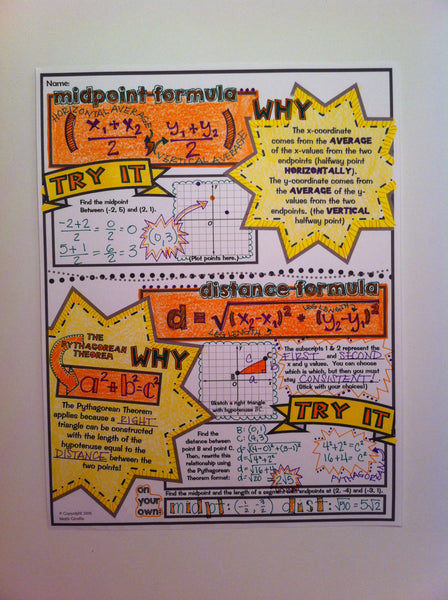 Name:
midpoint formula
HORIZONTAL AVERAGE
(x₁+x₂/2, y₁+y₂/2)
VERTICAL AVERAGE
WHY
The x-coordinate
comes from the AVERAGE
of the x-values from the two
endpoints (halfway point
HORIZONTALLY).
The y-coordinate comes from
the AVERAGE of the y-
values from the two
endpoints. (the VERTICAL
halfway point)
TRY IT
Find the midpoint
Between (-2, 5) and (2, 1).
-2+2/2 = 0/2 = 0
5+1/2 = 6/2 = 3
(0,3)
(Plot points here.)
distance formula
d = √(x₂-x₁)² + (y₂-y₁)²
LEG LENGTH
LEG LENGTH
THE
PYTHAGOREAN
THEOREM
WHY
a²+b²=c²
The Pythagorean Theorem
applies because a RIGHT
triangle can be constructed
with the length of the
hypotenuse equal to the
DISTANCE between the
two points!
c
b
a
Sketch a right triangle
with hypotenuse BC.
The subscripts 1 & 2 represent the
FIRST and SECOND
x and y values. You can choose
which is which, but then you must
stay CONSISTENT!
(Stick with your choices!)
TRY IT
Find the
distance between
point B and point C.
Then, rewrite this
relationship using
the Pythagorean
Theorem format:
B: (0,1)
C: (4,3)
d=√(4-0)²+(3-1)²
d=√4²+2²
d=√16+4
d=√20
2√5
4²+2²=C²
16+4=C²
PYTHAGOREAN
on your own:
Find the midpoint and the length of a segment with endpoints at (2, -4) and (-3, 1).
midpt: dist: √50 = 5√2
© Copyright 2015
Math Giraffe